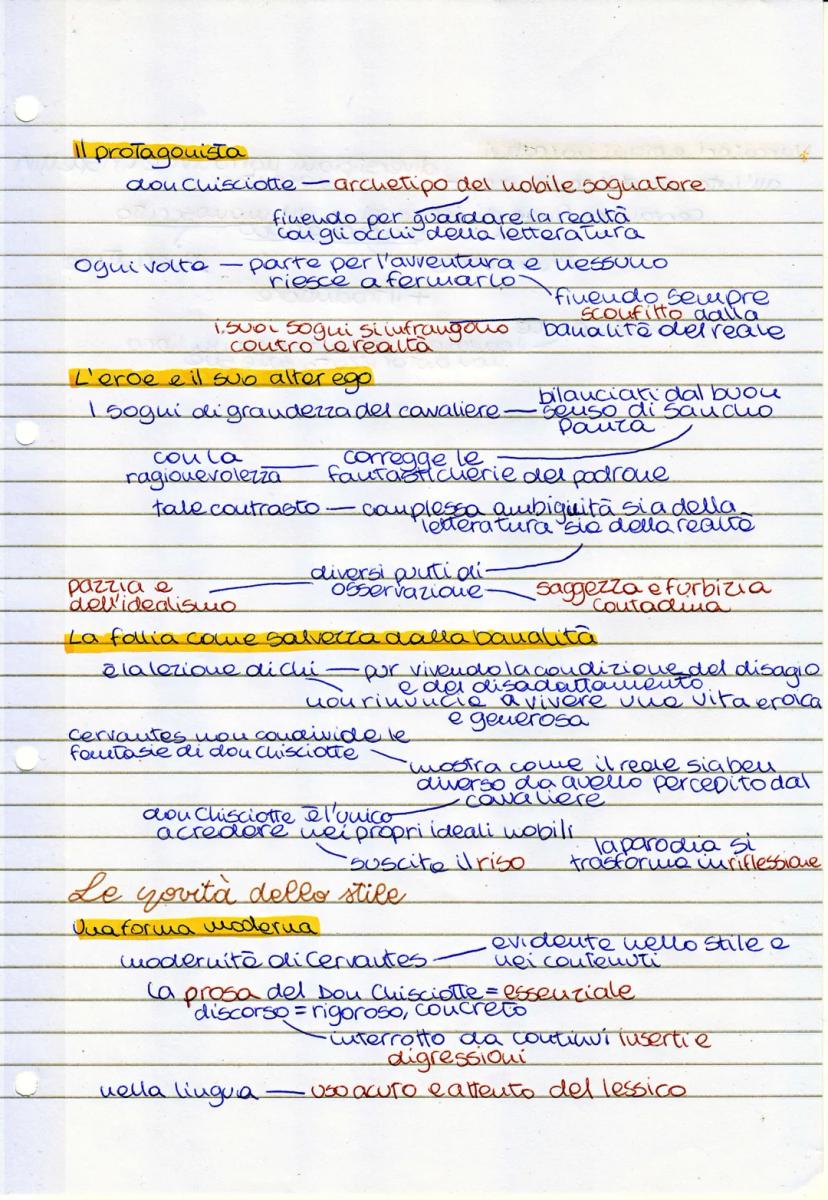 Il protagonista
don Chisciotte — archetipo del nobile sognatore
finendo per guardare la realtà
con gli occhi della letteratura
Ogni volta — parte per l'avventura e nessuno
riesce a fermarlo
finendo sempre
sconfitto dalla
i suoi sogni si infrangono
banalità del reale
contro la realtà
L'eroe e il suo alter ego
bilanciati dal buon
I sogni di grandezza del cavaliere — senso di Sancho
Panza
con la
corregge le
ragionevolezza — fantasticherie del padrone
tale contrasto — complessa ambiguità sia della
letteratura sia della realtà
diversi punti di
osservazione
pazzia e
dell'idealismo
saggezza e furbizia
contadina
La follia come salvezza dalla banalità
è la lezione di chi — pur vivendo la condizione del disagio
e del disadattamento
non rinuncia a vivere una vita eroica
e generosa
Cervantes non condivide le
fantasie di don Chisciotte
mostra come il reale sia ben
diverso da quello percepito dal
cavaliere
don Chisciotte è l'unico
a credere nei propri ideali nobili
suscita il riso
la parodia si
trasforma in riflessione
Le novità dello stile
Una forma moderna
modernità di Cervantes — evidente nello stile e
nei contenuti
La prosa del Don Chisciotte = essenziale
discorso = rigoroso, concreto
interrotto da continui inserti e
digressioni
nella lingua — uso acuto e attento del lessico